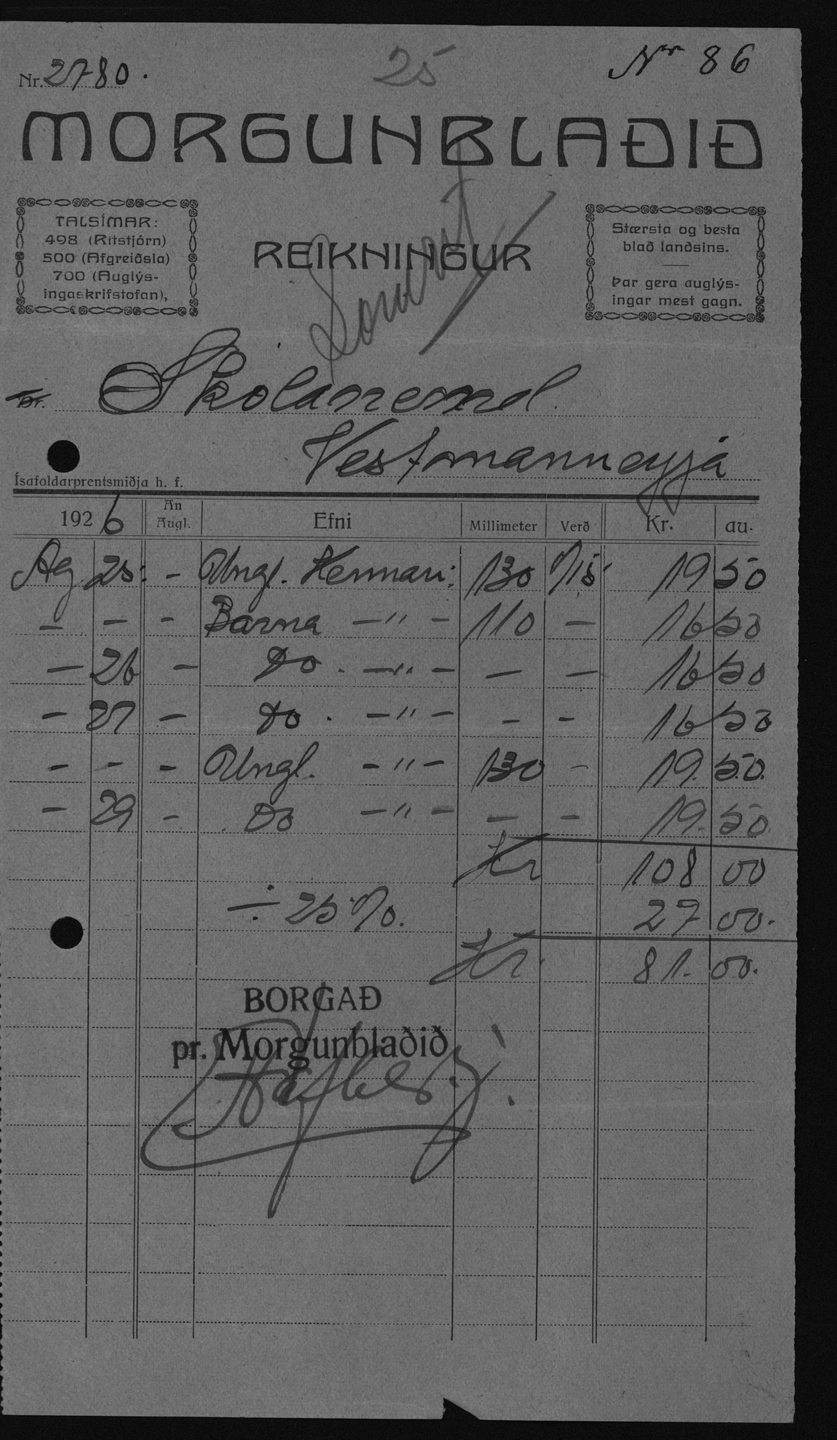 Nr. 2780.
25
Nr 86
MORGUNBLAÐIÐ
TALSÍMAR:
498 (Ritstjórn)
500 (Afgreiðsla)
700 (Auglýs-
ingaskrifstofan),
REIKNINGUR
Stærsta og besta
blað landsins.
Þar gera auglýs-
ingar mest gagn.
Skólanemd.
Vestmanneyja
Ísafoldarprentsmiðja h. f.
1926 An Augl. Efni Millimeter Verð Kr. au.
Ag. 25. - Ungl. Kennari: 130 %15 19 50
- - - Barna -"- 110 - 16 50
- 26 - Do. -"- - - 16 50
- 27 - Do. -"- - - 16 50
- - - Ungl. -"- 130 - 19. 50.
- 29 - Do -"- - - 19. 50
Kr 108 00
÷ 25%. 27 00.
Kr. 81. 00.
BORGAÐ
pr. Morgunblaðið